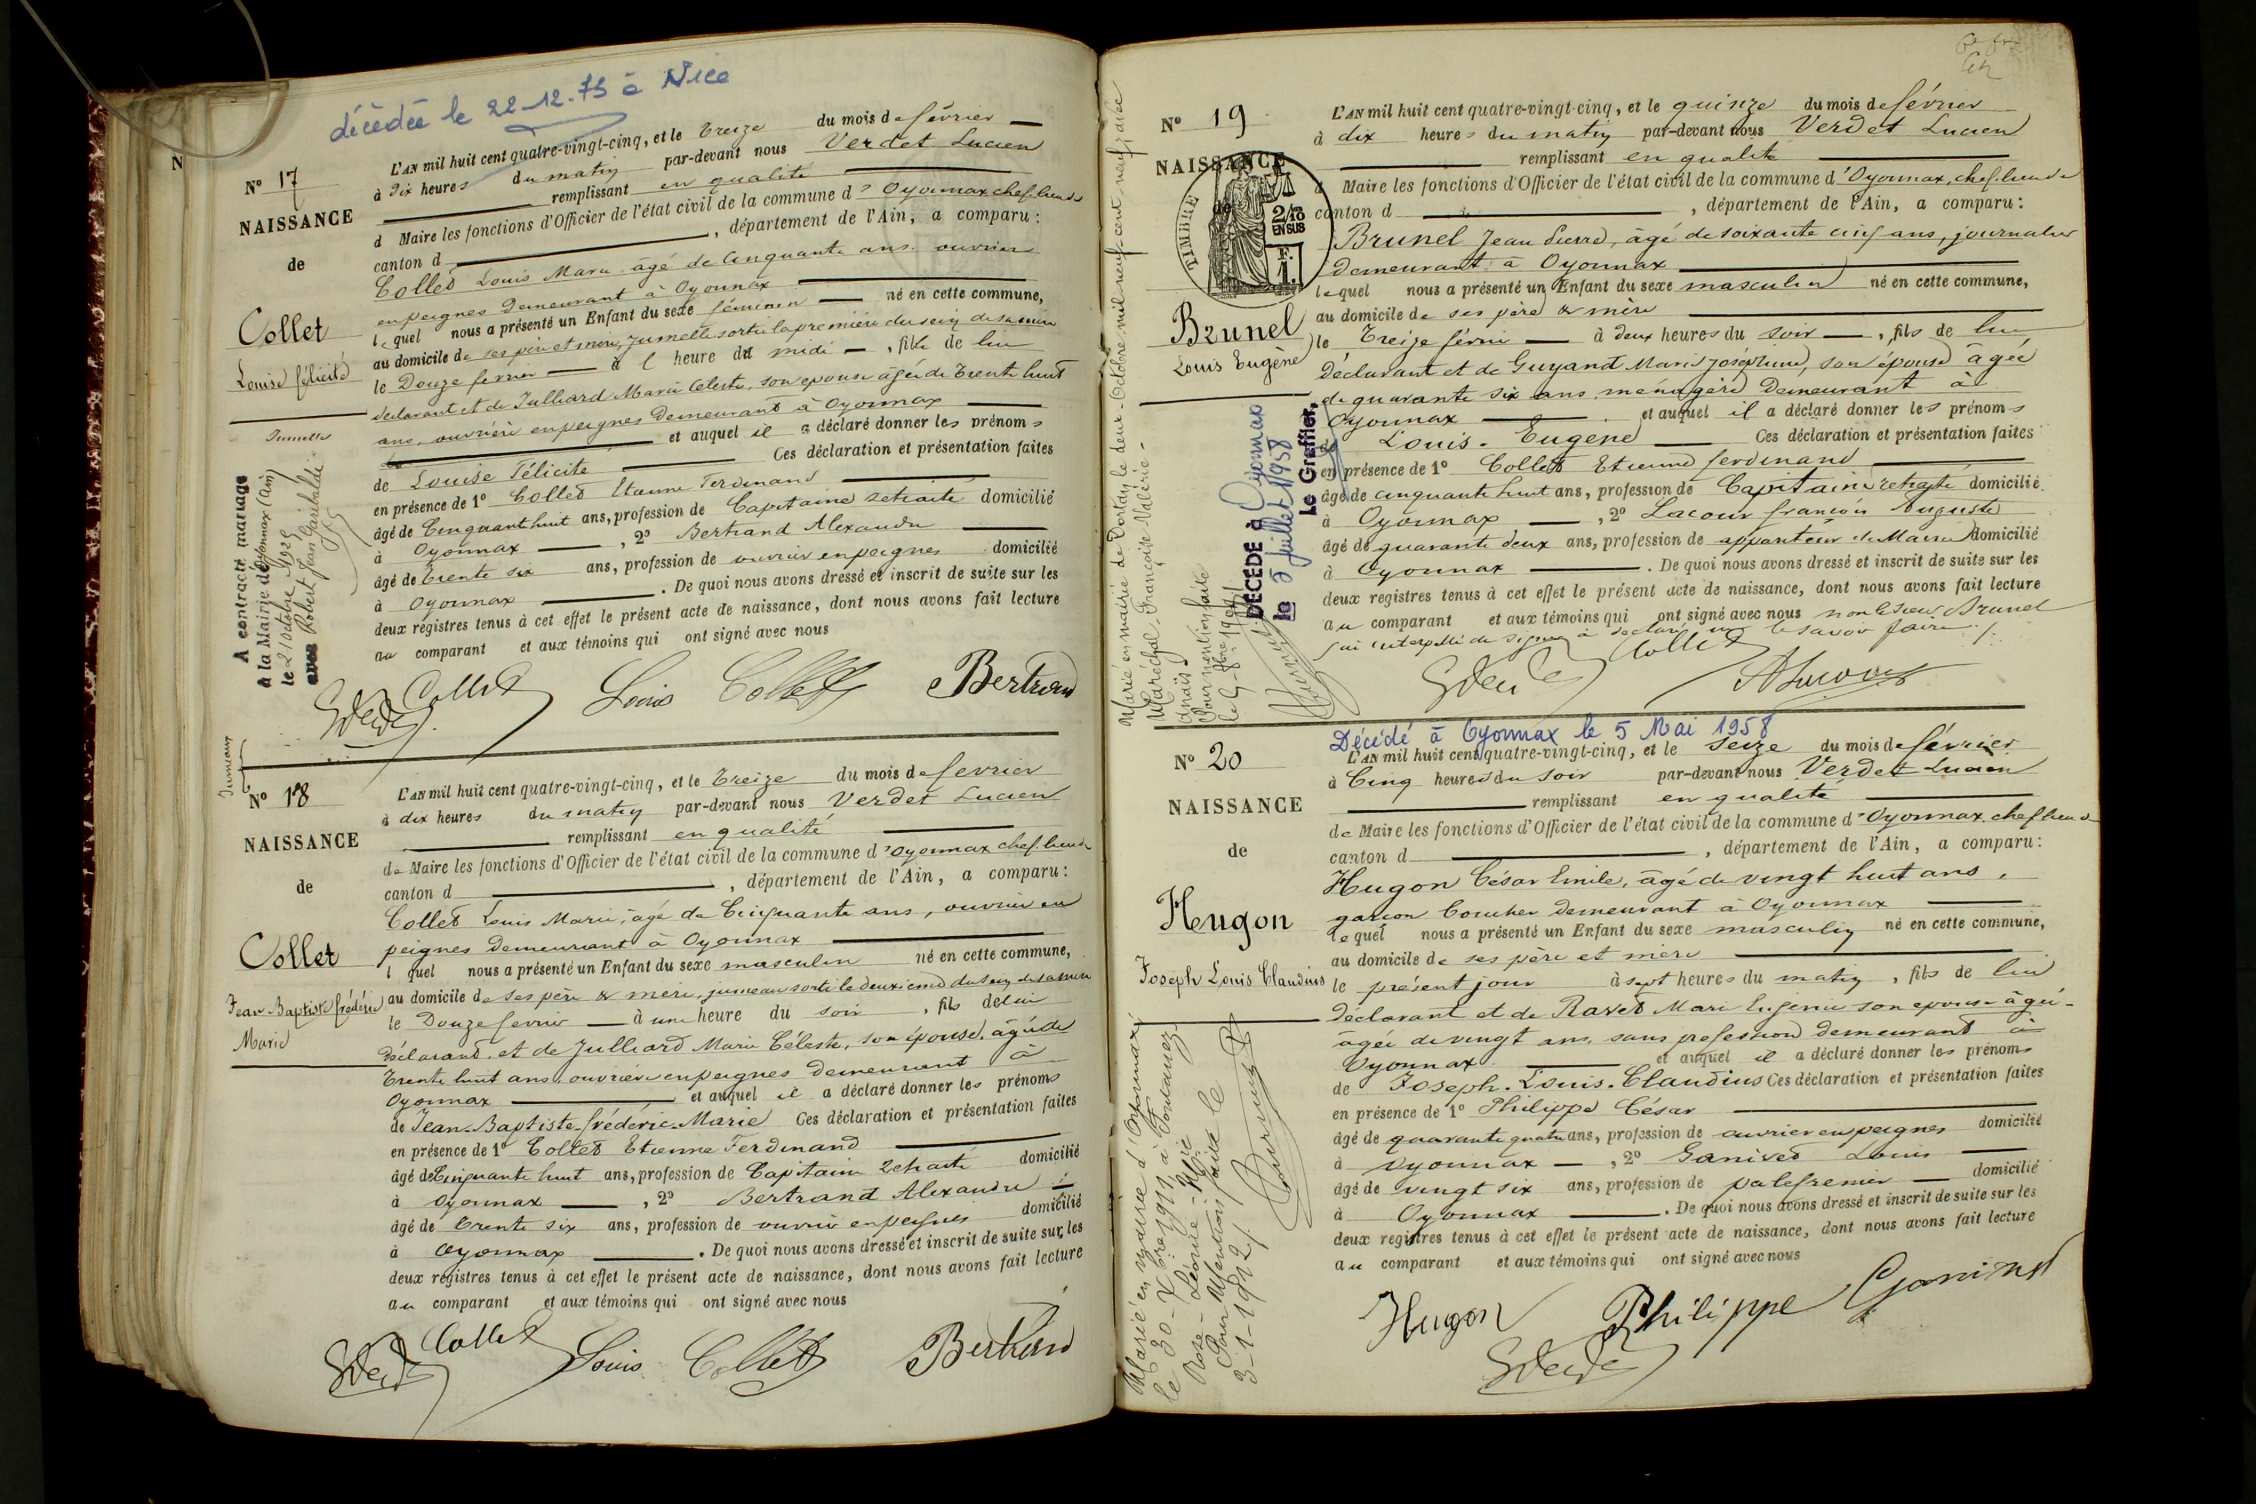 décédée le 22-12-75 à Nice
N
N° 17
NAISSANCE
de
Collet
Louise félicité
Jumelle
A contracté mariage
à la Mairie de Oyonnax (Ain)
le 21 octobre 1925
avec Robert Jean Garibaldi
L'AN mil huit cent quatre-vingt-cinq, et le Treize du mois de février
à Dix heures du matin par-devant nous Verdet Lucien
remplissant en qualité
d Maire les fonctions d'Officier de l'état civil de la commune d'Oyonnax chef lieu de
canton d , département de l'Ain, a comparu :
Collet Louis Marie âgé de Cinquante ans ouvrier
en peignes Demeurant à Oyonnax
lequel nous a présenté un Enfant du sexe féminin né en cette commune,
au domicile de ses père et mère, Jumelle sortie la première du sein de sa mère
le Douze fevrier à l heure du midi , fille de lui
déclarant et de Julliard Marie Céleste, son épouse âgée de Trente huit
ans, ouvrière en peignes Demeurant à Oyonnax
et auquel il a déclaré donner les prénoms
de Louise Félicité Ces déclaration et présentation faites
en présence de 1° Collet Etienne Ferdinand
âgé de Cinquante huit ans, profession de Capitaine retraité domicilié
à Oyonnax , 2° Bertrand Alexandre
âgé de Trente six ans, profession de ouvrier en peignes domicilié
à Oyonnax . De quoi nous avons dressé et inscrit de suite sur les
deux registres tenus à cet effet le présent acte de naissance, dont nous avons fait lecture
au comparant et aux témoins qui ont signé avec nous
Collet Louis Collet Bertrand
Jumeaux
N° 18
NAISSANCE
de
Collet
Jean-Baptiste frédéric
Marie
L'AN mil huit cent quatre-vingt-cinq, et le Treize du mois de fevrier
à dix heures du matin par-devant nous Verdet Lucien
remplissant en qualité
de Maire les fonctions d'Officier de l'état civil de la commune d'Oyonnax chef lieu de
canton d , département de l'Ain, a comparu :
Collet Louis Marie, âgé de Cinquante ans, ouvrier en
peignes Demeurant à Oyonnax
l quel nous a présenté un Enfant du sexe masculin né en cette commune,
au domicile de ses père & mère, jumeau sorti le deuxième du sein de sa mère
le Douze fevrier à une heure du soir , fils de lui
déclarant, et de Julliard Marie Céleste, son épouse, âgée de
Trente huit ans, ouvrière en peignes demeurant à
Oyonnax et auquel il a déclaré donner les prénoms
de Jean-Baptiste-frédéric-Marie Ces déclaration et présentation faites
en présence de 1° Collet Etienne Ferdinand
âgé de Cinquante huit ans, profession de Capitaine retraité domicilié
à Oyonnax , 2° Bertrand Alexandre
âgé de Trente six ans, profession de ouvrier en peignes domicilié
à Oyonnax . De quoi nous avons dressé et inscrit de suite sur les
deux registres tenus à cet effet le présent acte de naissance, dont nous avons fait lecture
au comparant et aux témoins qui ont signé avec nous
Collet Louis Collet Bertrand
N° 19
NAISSANCE
de
TIMBRE
2/10
EN SUS
F.
1.
Brunel
Louis Eugène
Marié en mairie de Dortan le deux Octobre mil neuf cent neuf, avec
Maréchal, Françoise-Valérie-
Anaïs
Pour mention faite
DÉCÉDÉ à Oyonnax
le 5 Juillet 1958
Le Greffier,
L'AN mil huit cent quatre-vingt-cinq, et le quinze du mois de février
à dix heures du matin par-devant nous Verdet Lucien
remplissant en qualité
d Maire les fonctions d'Officier de l'état civil de la commune d'Oyonnax, chef lieu de
canton d , département de l'Ain, a comparu :
Brunel Jean Pierre, âgé de soixante cinq ans, journalier
Demeurant à Oyonnax
lequel nous a présenté un Enfant du sexe masculin né en cette commune,
au domicile de ses père & mère
le Treize février à deux heures du soir , fils de lui
Déclarant et de Guyand Marie Joséphine, son épouse âgée
de quarante six ans ménagère Demeurant à
Oyonnax et auquel il a déclaré donner les prénoms
de Louis-Eugène Ces déclaration et présentation faites
en présence de 1° Collet Etienne ferdinand
âgé de cinquante huit ans, profession de Capitaine retraité domicilié
à Oyonnax , 2° Lacour françois Auguste
âgé de quarante deux ans, profession de appariteur de Mairie domicilié
à Oyonnax . De quoi nous avons dressé et inscrit de suite sur les
deux registres tenus à cet effet le présent acte de naissance, dont nous avons fait lecture
au comparant et aux témoins qui ont signé avec nous non le sieur Brunel
qui interpellé de signer a déclaré ne le savoir faire
Collet ALacour
Décédé à Oyonnax le 5 Mai 1958
N° 20
NAISSANCE
de
Hugon
Joseph Louis Claudius
Marié en mairie d'Oyonnax
le 30-Xbre 1911, à Fontanez
Rose-Léonie-Marie
Pour Mention faite le
3-1-1912
L'AN mil huit cent quatre-vingt-cinq, et le seize du mois de février
à Cinq heures du soir par-devant nous Verdet Lucien
remplissant en qualité
de Maire les fonctions d'Officier de l'état civil de la commune d'Oyonnax chef lieu de
canton d , département de l'Ain, a comparu :
Hugon César Emile, âgé de vingt huit ans,
garçon boucher demeurant à Oyonnax
lequel nous a présenté un Enfant du sexe masculin né en cette commune,
au domicile de ses père et mère
le présent jour à sept heures du matin , fils de lui
déclarant et de Ravet Marie Eugénie son épouse âgée
âgée de vingt ans, sans profession demeurant à
Oyonnax et auquel il a déclaré donner les prénoms
de Joseph-Louis-Claudius Ces déclaration et présentation faites
en présence de 1° Philippe César
âgé de quarante quatre ans, profession de ouvrier en peignes domicilié
à Oyonnax , 2° Ganivet Louis
âgé de vingt six ans, profession de palefrenier domicilié
à Oyonnax . De quoi nous avons dressé et inscrit de suite sur les
deux registres tenus à cet effet le présent acte de naissance, dont nous avons fait lecture
au comparant et aux témoins qui ont signé avec nous
Hugon Philippe Ganivet